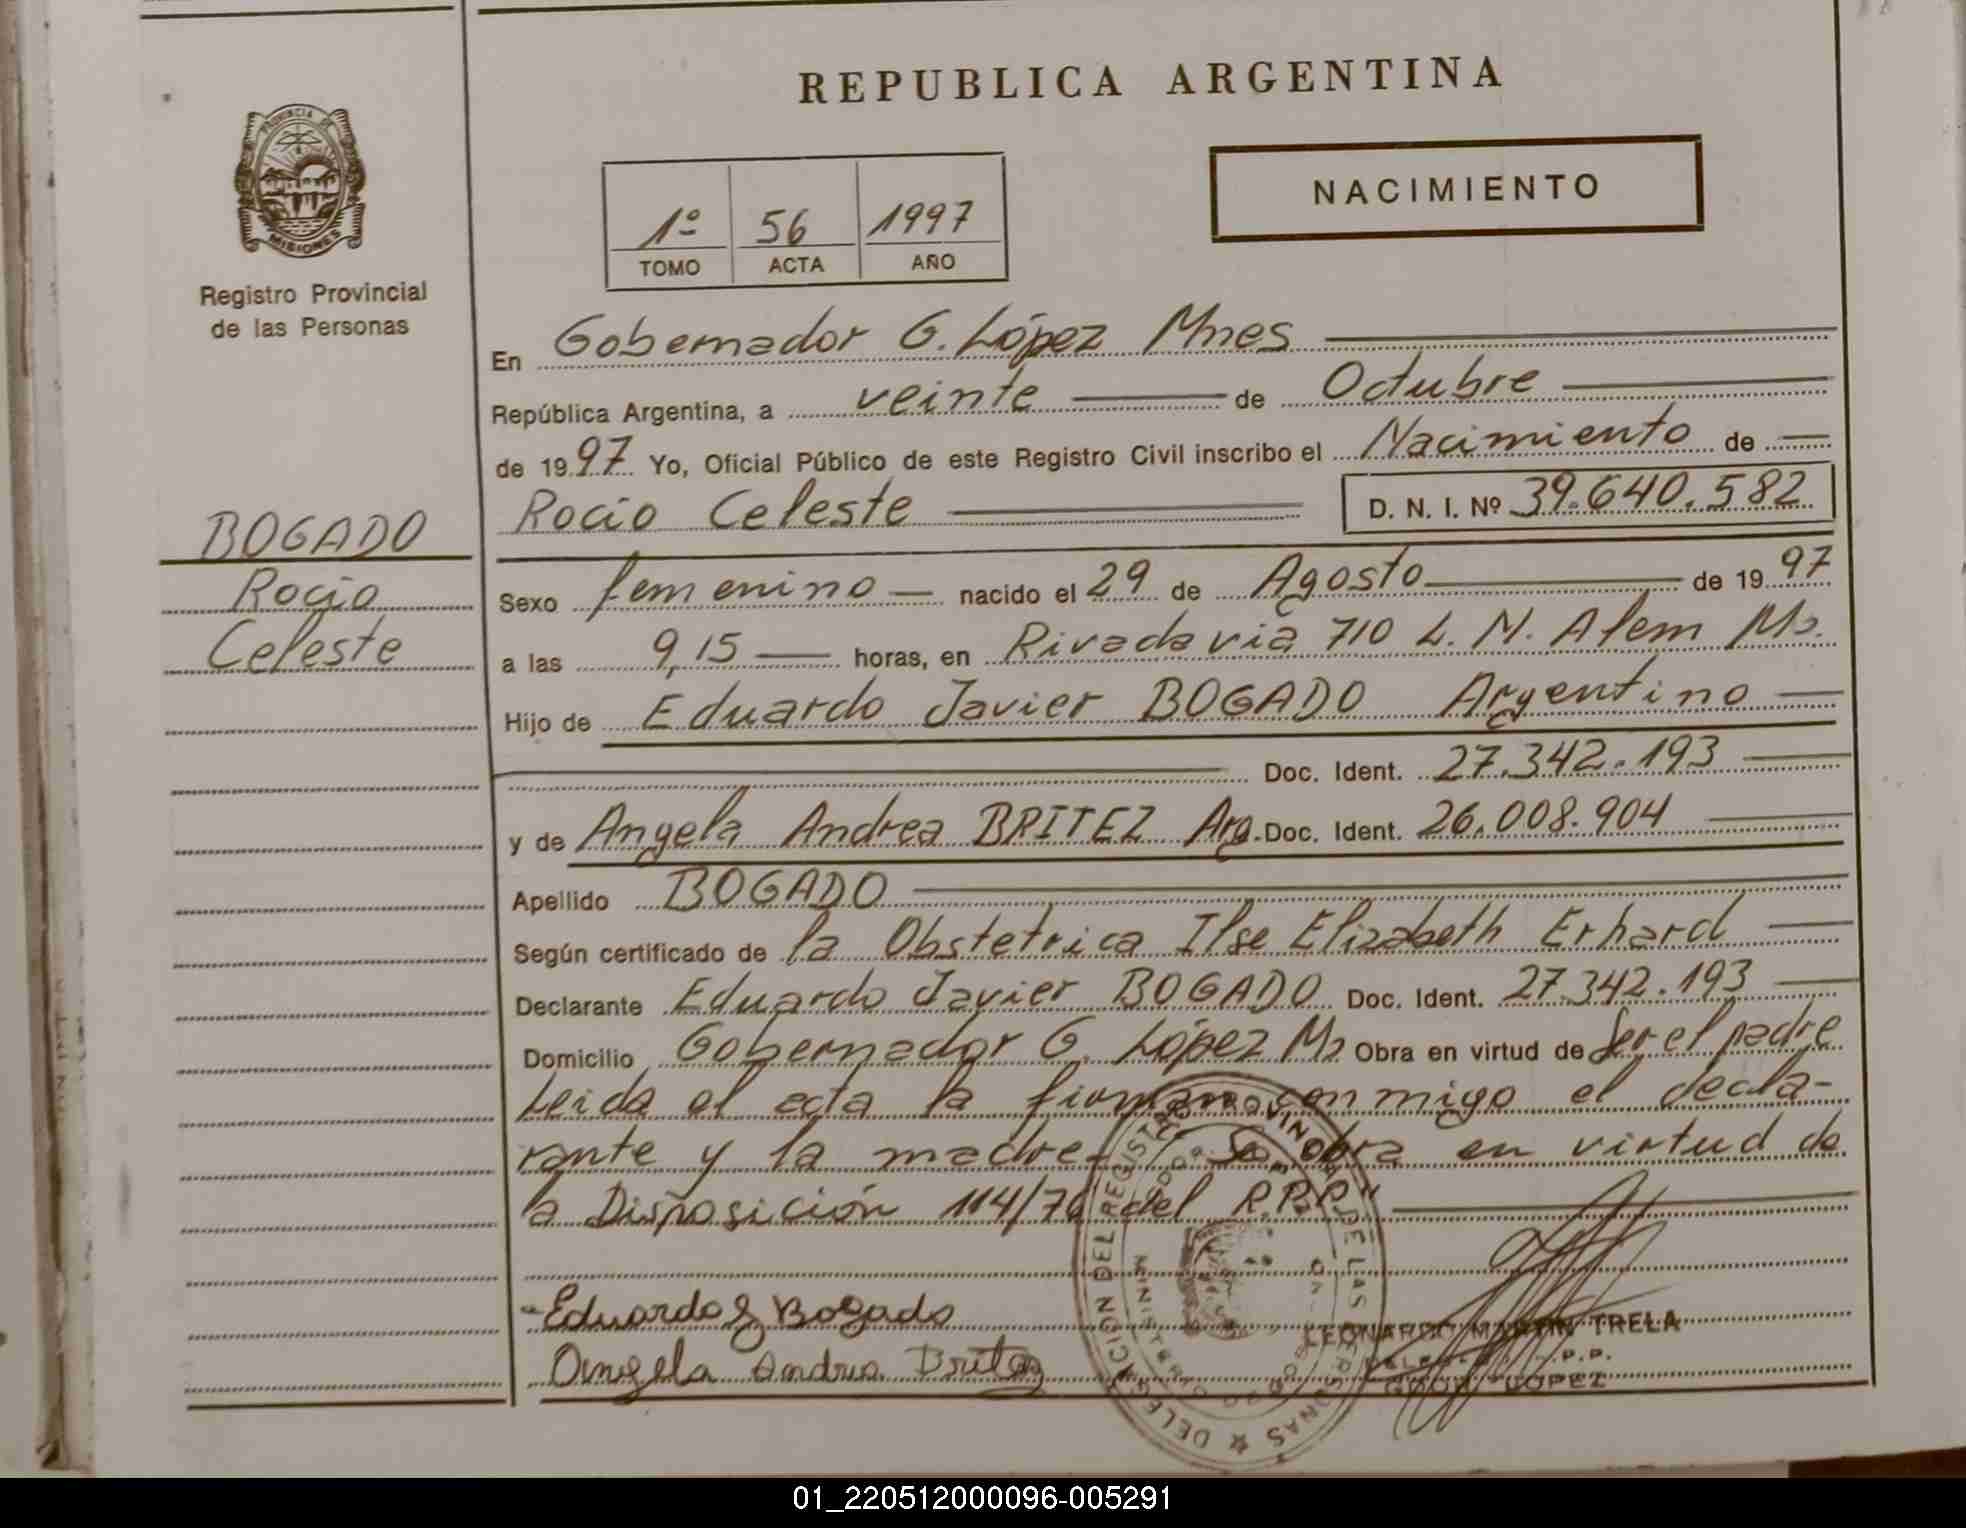 REPUBLICA ARGENTINA
PROVINCIA DE
MISIONES
Registro Provincial
de las Personas
1º 56 1997
TOMO ACTA AÑO
NACIMIENTO
En Gobernador G. López Mnes
República Argentina, a veinte de Octubre
de 1997 Yo, Oficial Público de este Registro Civil inscribo el Nacimiento de
Rocio Celeste D. N. I. Nº 39.640.582
BOGADO
Rocio
Celeste
Sexo femenino nacido el 29 de Agosto de 1997
a las 9,15 horas, en Rivadavia 710 L. N. Alem Ms.
Hijo de Eduardo Javier BOGADO Argentino
Doc. Ident. 27.342.193
y de Angela Andrea BRITEZ Arg. Doc. Ident. 26.008.904
Apellido BOGADO
Según certificado de la Obstetrica Ilse Elizabeth Erhard
Declarante Eduardo Javier BOGADO Doc. Ident. 27.342.193
Domicilio Gobernador G. López Ms Obra en virtud de Ser el padre
Leida el acta la firman conmigo el decla-
rante y la madre. Se obra en virtud de
la Disposición 114/76 del R.P.P."
Eduardo J Bogado
Angela Andrea Britez
LEONARDO MARTIN TRELA
LOPEZ
01_220512000096-005291